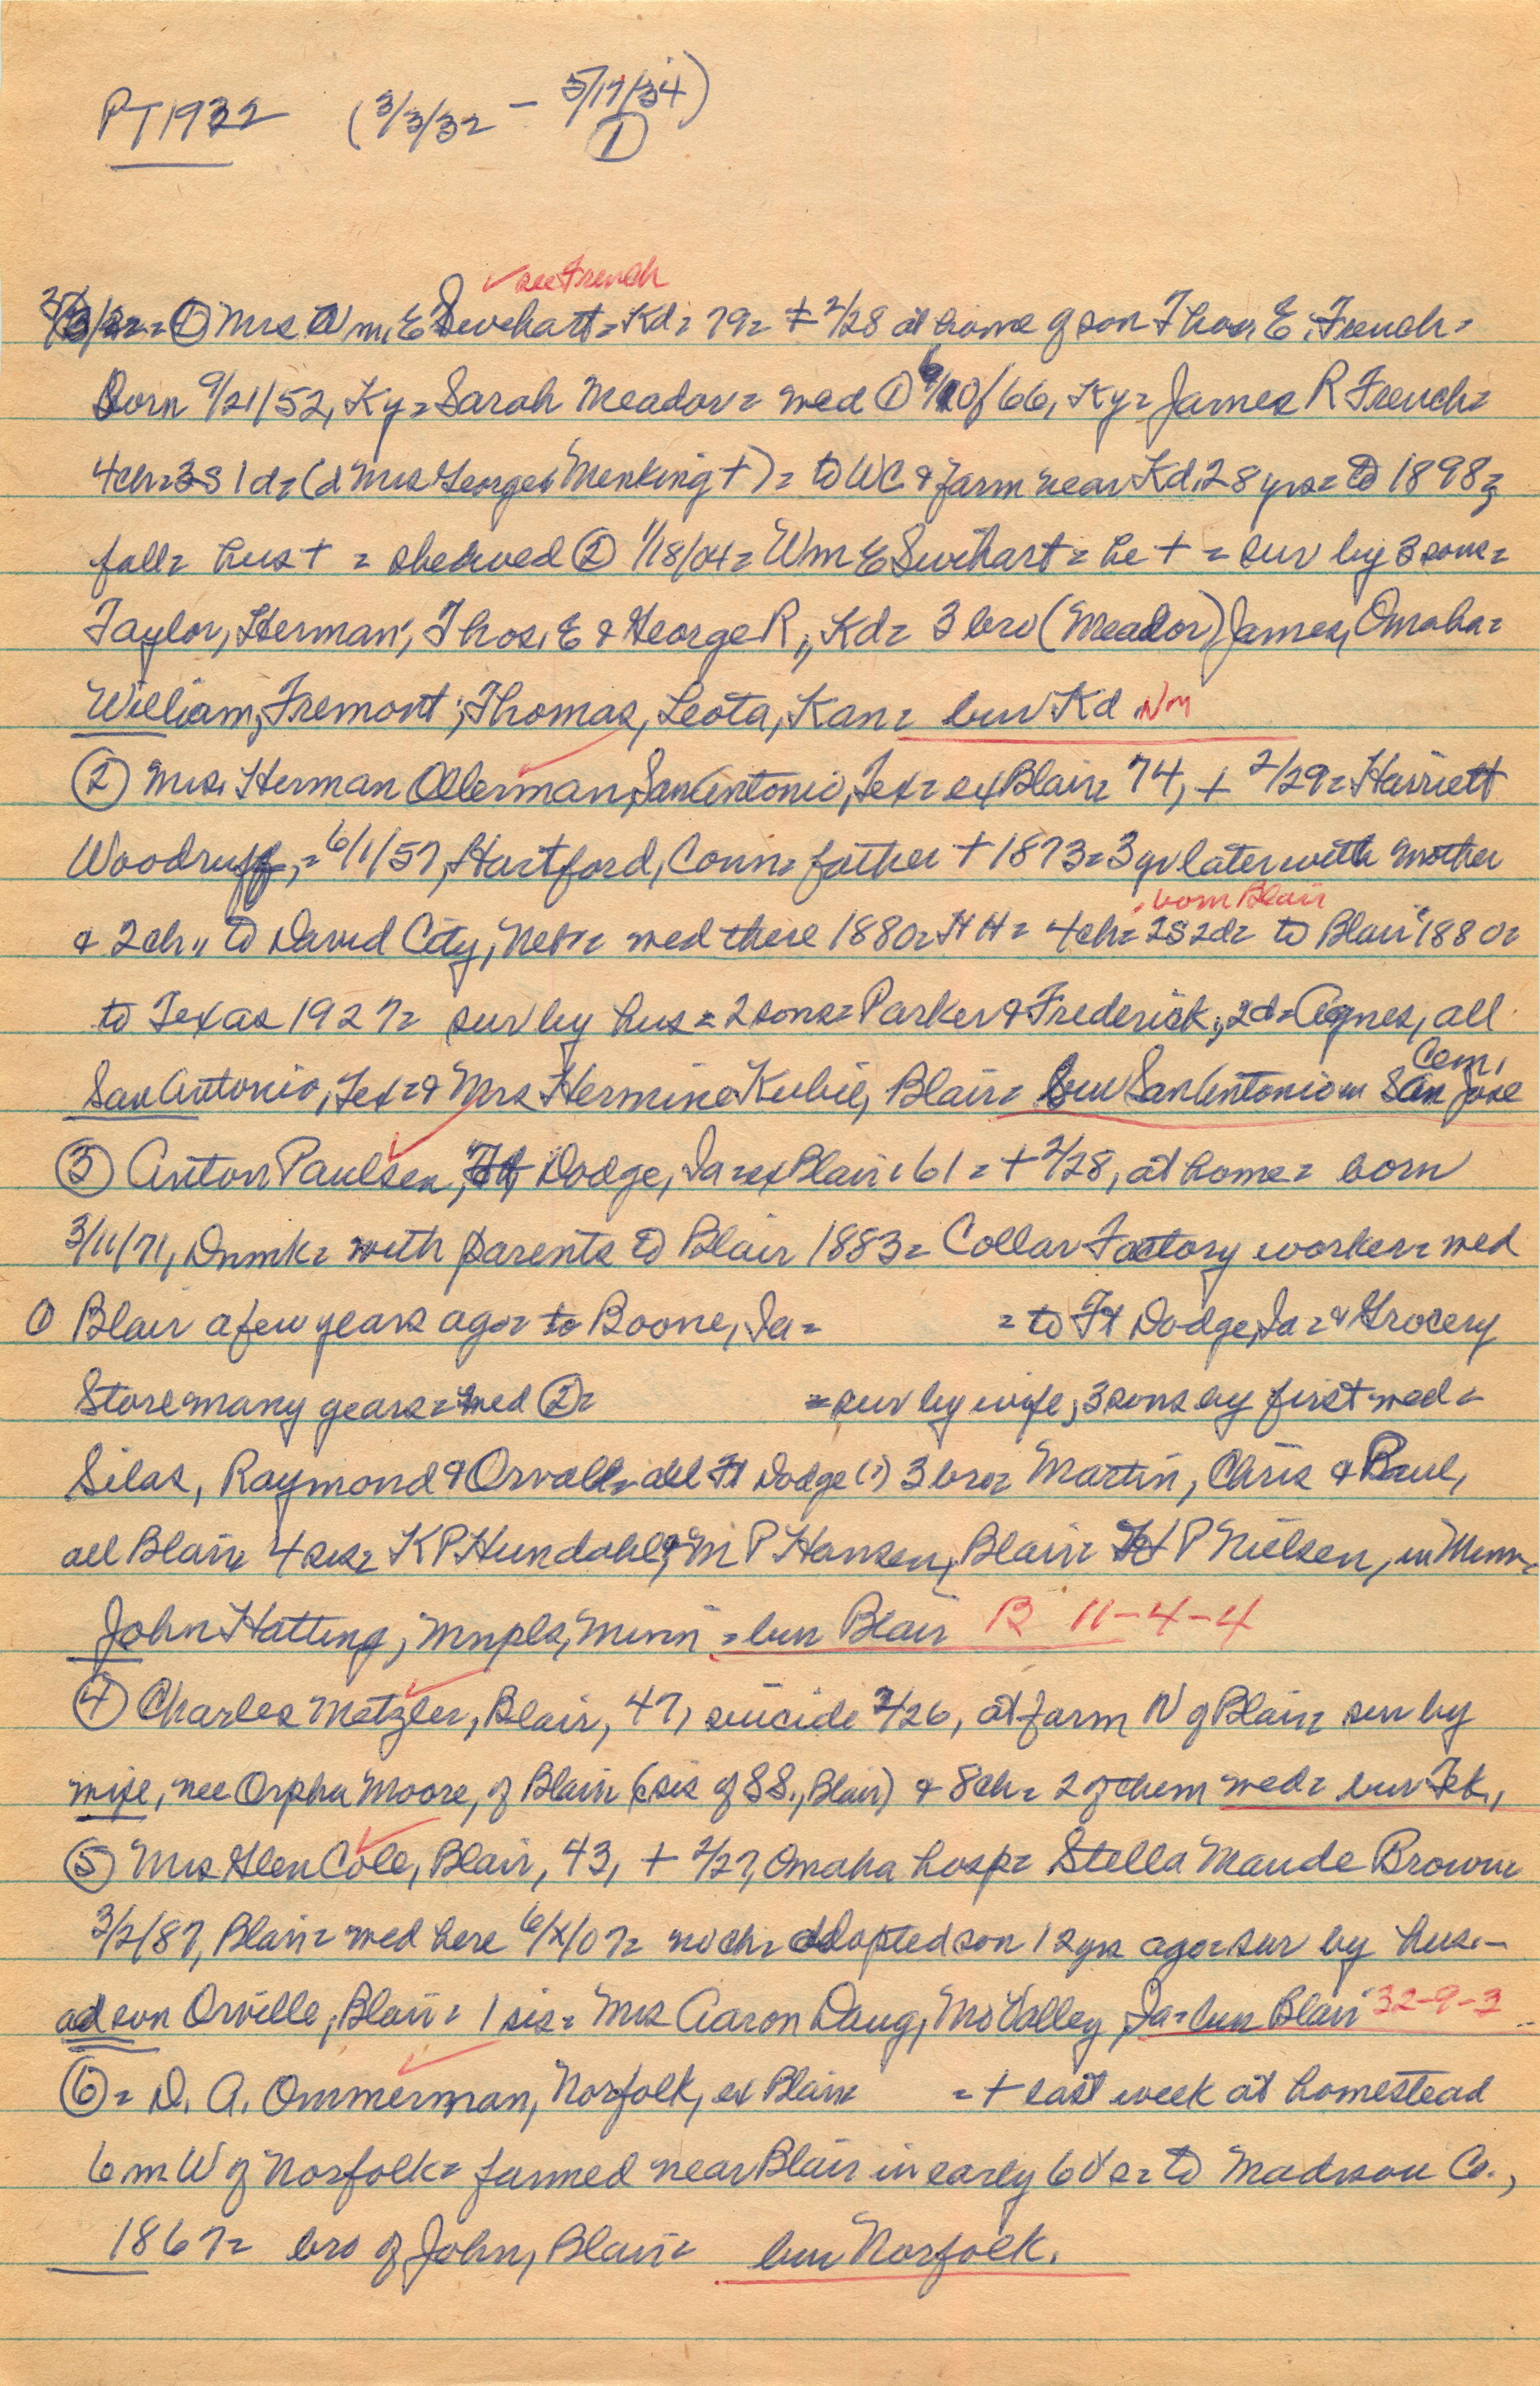 PT1932 (3/3/32 – 5/17/34)
①
✓ see French
3/3/32= ① Mrs Wm. E Swihart= Kd= 79= + 2/28 at home of son Thos. E. French=
Born 9/21/52, Ky= Sarah Meador= wed ① 9/10/66, Ky= James R French=
4ch= 3S 1d= (d Mrs George Menking +)= to WC & farm near Kd. 28 yrs= to 1898=
fall= hus + = she wed ② 1/18/04= Wm E Swihart= he + = sur by 3 sons=
Taylor, Herman; Thos. E & George R., Kd= 3 bro (Meador) James, Omaha=
William, Fremont; Thomas, Leota, Kan= bur Kd Nm
② Mrs. Herman Ollerman, San Antonio, Tex= ex Blair= 74, + 2/29= Harriett
Woodruff,= 6/1/57, Hartford, Conn= father + 1873= 3 yr later with mother
born Blair
& 2ch., to David City, Nebr= wed there 1880= HH= 4ch= 2S 2d= to Blair 1880=
to Texas 1927= sur by hus= 2 sons= Parker & Frederick., 2d= Agnes, all
Cem.
San Antonio, Tex= & Mrs Hermine Kubie, Blair= bur San Antonio= San Jose
③ Anton Paulsen, Ft Dodge, Ia= ex Blair= 61= + 2/28, at home= born
3/11/71, Dnmk= with parents to Blair 1883= Collar Factory worker= wed
① Blair a few years ago= to Boone, Ia= = to Ft Dodge, Ia= & Grocery
Store many years= wed ②= = sur by wife, 3 sons by first wed=
Silas, Raymond & Orval= all Ft Dodge (?) 3 bro= Martin, Chris & Paul,
all Blair= 4 sis= K P Hundahl, & M P Hansen, Blair= H P Nielsen, in Minn=
John Hatting, Mnpls, Minn= bur Blair B 11-4-4
④ Charles Metzler, Blair, 47, suicide 2/26, at farm N of Blair= sur by
wife, nee Orpha Moore, of Blair (sis of S S., Blair) & 8ch= 2 of them wed= bur Tek.,
⑤ Mrs Glen Cole, Blair, 43, + 2/27, Omaha hosp= Stella Maude Brown=
3/2/87, Blair= wed here 6/x/07= no ch= adopted son 12 yrs ago= sur by hus.–
ad son Orville, Blair= 1 sis= Mrs Aaron Daug, Mo Valley, Ia= bur Blair 32-9-3
⑥= D. A. Ommerman, Norfolk, ex Blair= =+ last week at homestead
6 m W of Norfolk= farmed near Blair in early 60's= to Madison Co.,
1867= bro of John, Blair= bur Norfolk.